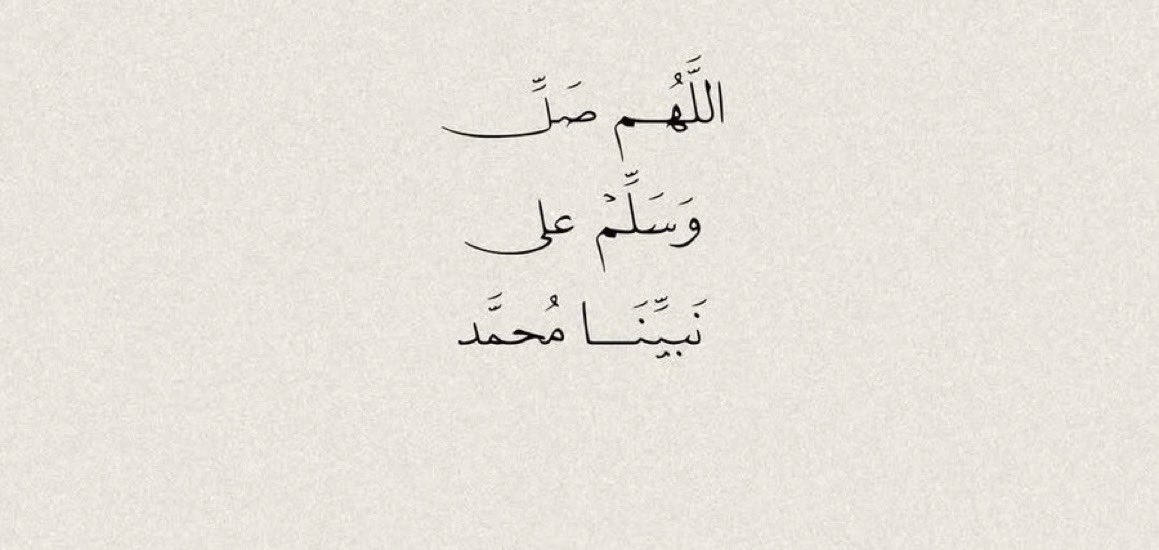 اللَّهُـم صَلِّ
وَسَلِّمْ على
نَبِيِّنَـا مُحمَّد